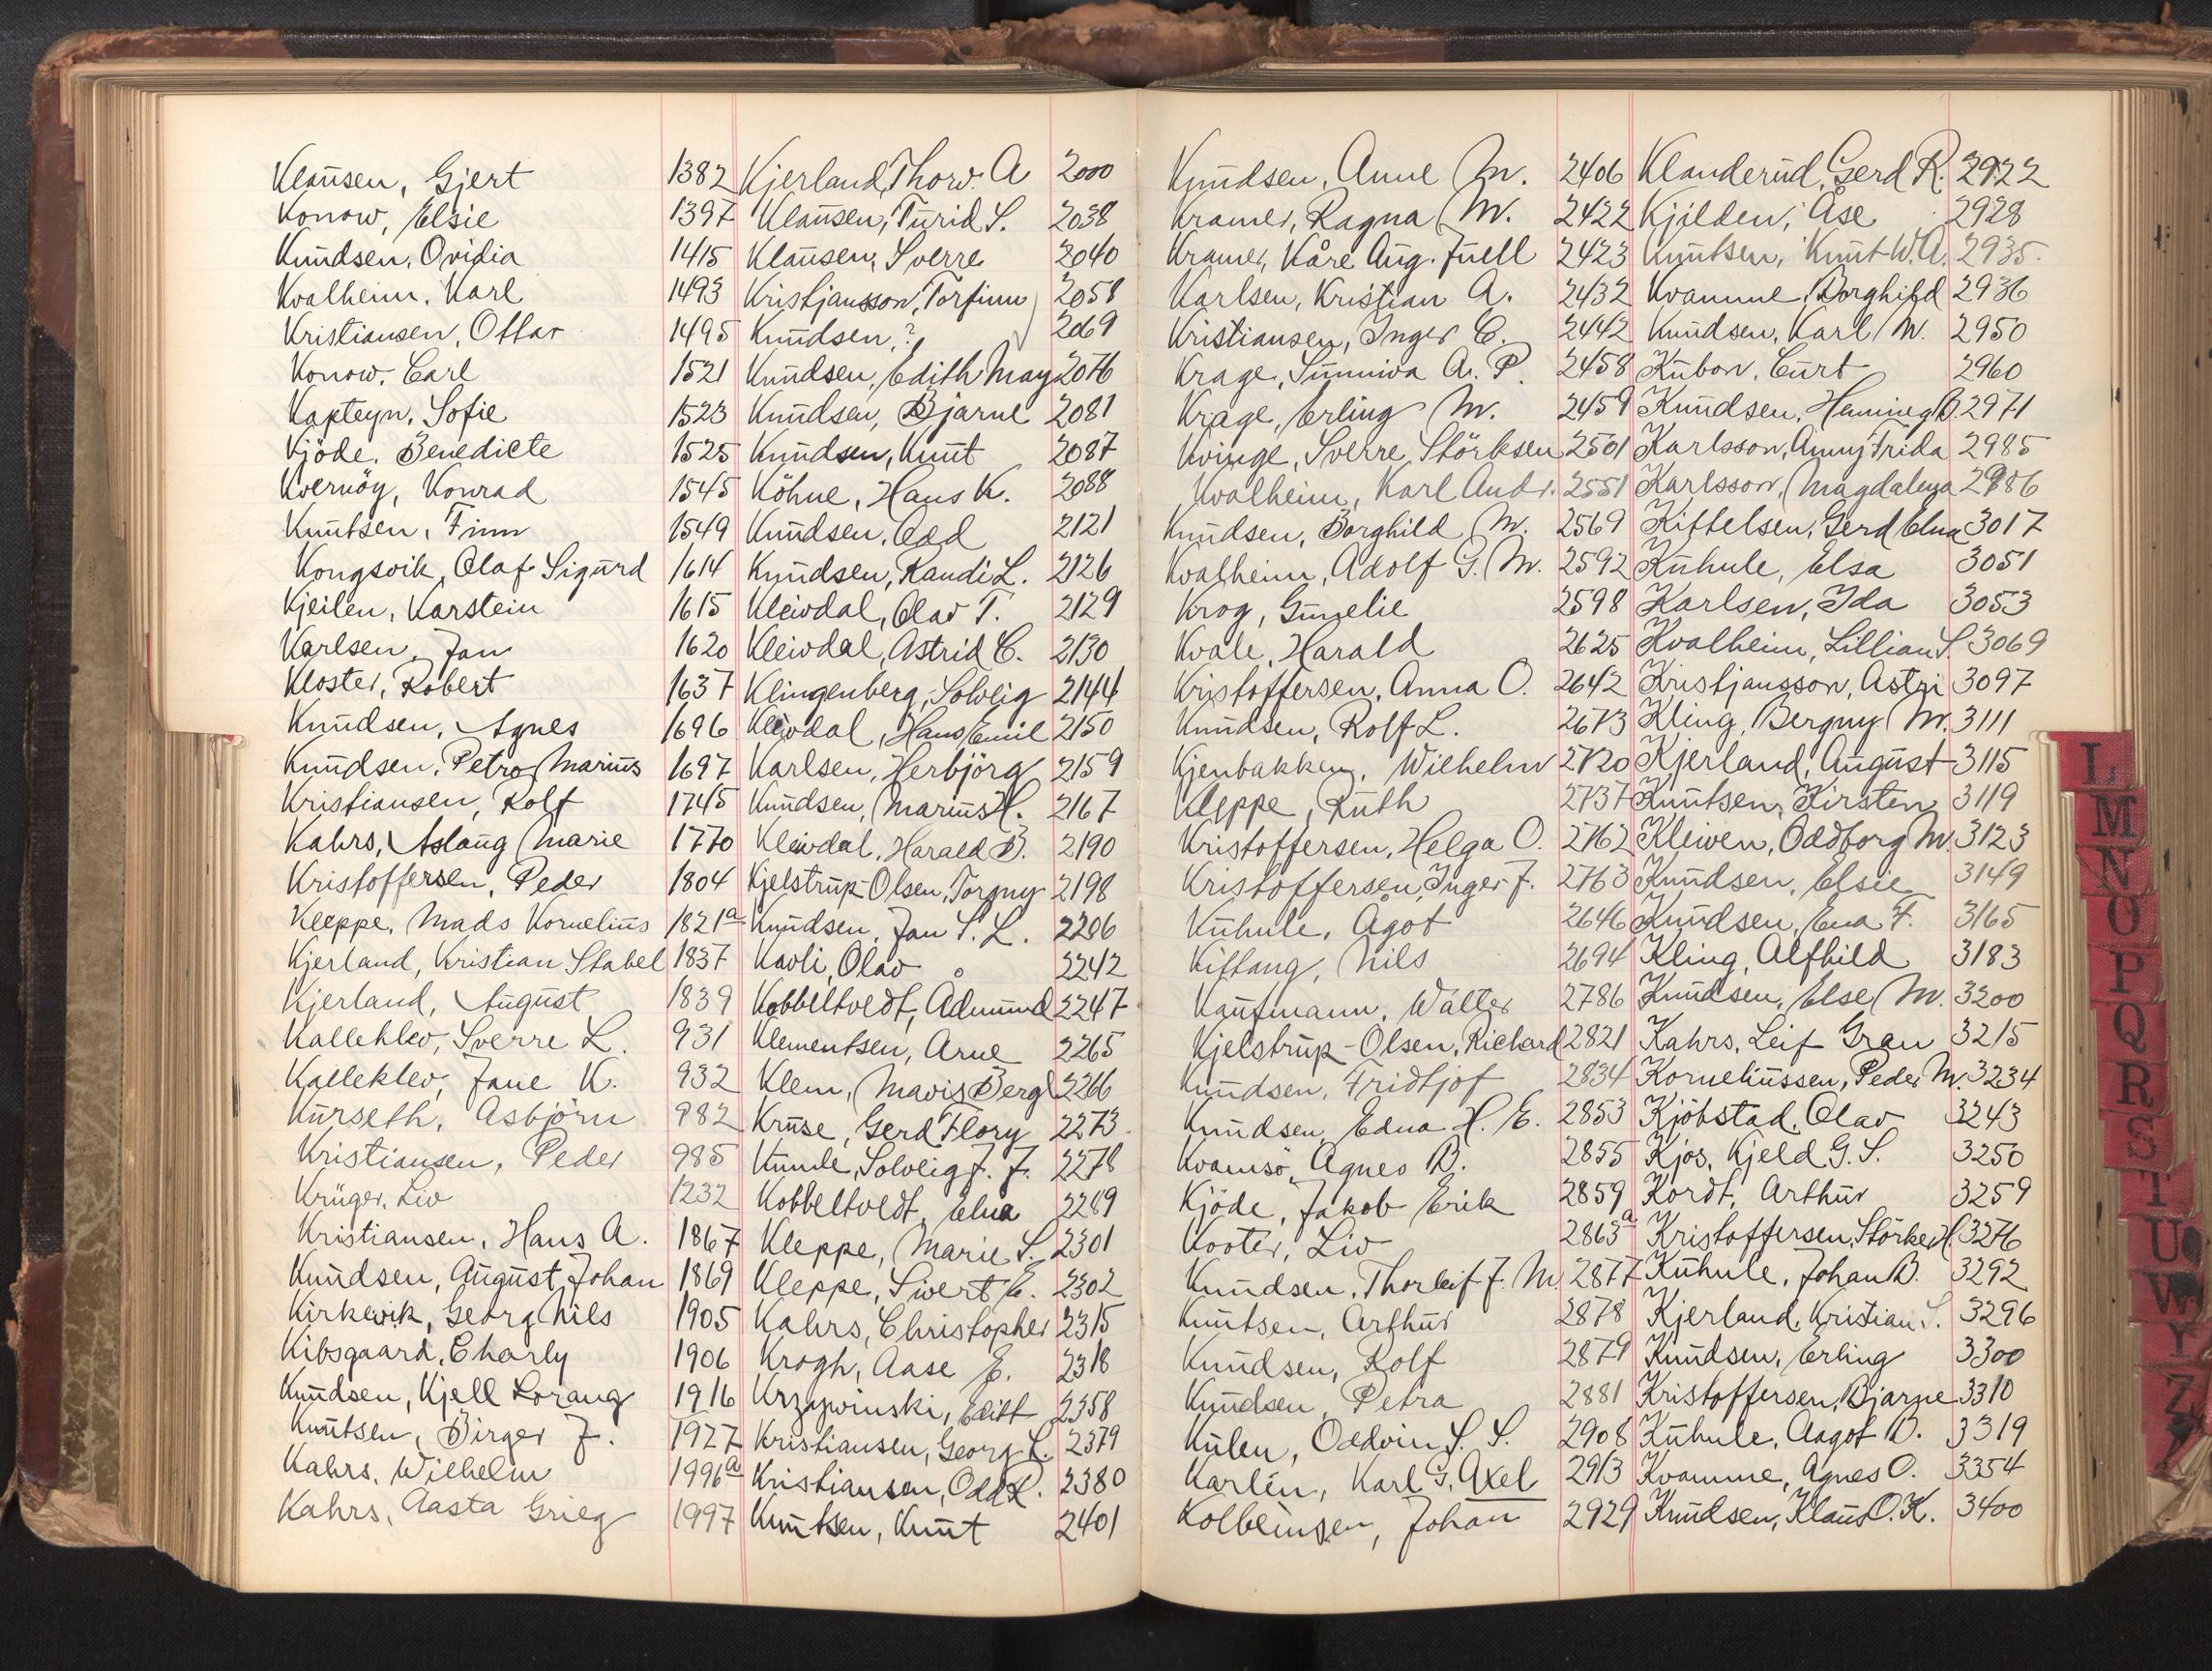 Klausen, Gjert 1382
Konow, Elsie 1397
Knudsen, Ovidia 1415
Kvalheim, Karl 1493
Kristiansen, Ottar 1495
Konow, Carl 1521
Kapteyn, Sofie 1523
Kjöde, Benedicte 1525
Kvernöy, Konrad 1545
Knutsen, Finn 1549
Kongsvik, Olaf Sigurd 1614
Kjeilen, Karstein 1615
Karlsen, Jan 1620
Kloster, Robert 1637
Knudsen, Agnes 1696
Knudsen, Petro Marius 1697
Kristiansen, Rolf 1745
Kahrs, Aslaug Marie 1770
Kristoffersen, Peder 1804
Kleppe, Mads Kornelius 1821a
Kjerland, Kristian Stabel 1837
Kjerland, August 1839
Kalleklev, Sverre L. 931
Kalleklev, Jane K. 932
Kurseth, Asbjörn 982
Kristiansen, Peder 985
Krüger, Liv 1232
Kristiansen, Hans A. 1867
Knudsen, August Johan 1869
Kirkevik, Georg Nils 1905
Kibsgaard, Charly 1906
Knudsen, Kjell Lorang 1916
Knutsen, Birger J. 1927
Kahrs, Wilhelm 1996a
Kahrs, Aasta Grieg 1997
Kjerland, Thorv. A 2000
Klausen, Turid S. 2038
Klausen, Sverre 2040
Kristjansson, Torfinn 2058
Knudsen, ? 2069
Knudsen, Edith May 2076
Knudsen, Bjarne 2081
Knudsen, Knut 2087
Köhne, Hans K. 2088
Knudsen, Odd 2121
Knudsen, Randi L. 2126
Kleivdal, Olav T. 2129
Kleivdal, Astrid C. 2130
Klingenberg, Solveig 2144
Kleivdal, Hans Emil 2150
Karlsen, Herbjörg 2159
Knudsen, Marius H. 2167
Kleivdal, Harald B. 2190
Kjelstrup-Olsen, Torgny 2198
Knudsen, Jan S. L. 2206
Kavli, Olav 2242
Kobbeltvedt, Admund 2247
Klementsen, Arne 2265
Klem, Mavis Bergl 2266
Kruse, Gerd Flory 2273
Kunde, Solveig J. J. 2278
Kobbeltvedt, Elna 2289
Kleppe, Marie S. 2301
Kleppe, Sivert E. 2302
Kahrs, Christopher 2315
Krogh, Aase E. 2318
Krzyzwinski, Edith 2358
Kristiansen, Georg L. 2379
Kristiansen, Odd R. 2380
Knutsen, Knut 2401
Knudsen, Anne M. 2406
Kramer, Ragna M. 2422
Kramer, Kåre Aug. Juell 2423
Karlsen, Kristian A. 2432
Kristiansen, Inger C. 2442
Krage, Sunniva A. P. 2458
Krage, Erling M. 2459
Kvinge, Sverre Störksen 2501
Kvalheim, Karl Andr. 2551
Knudsen, Borghild M. 2569
Kvalheim, Adolf G. M. 2592
Krog, Gunelie 2598
Kvale, Harald 2625
Kristoffersen, Anna O. 2642
Knudsen, Rolf L. 2673
Kjenbakken, Wilhelm 2720
Kleppe, Ruth 2737
Kristoffersen, Helga O. 2762
Kristoffersen, Inger J. 2763
Kuhnle, Ågot 2646
Kittang, Nils 2694
Kaufmann, Walter 2786
Kjelstrup-Olsen, Richard 2821
Knudsen, Fridtjof 2834
Knudsen, Edna H. E. 2853
Kvamsö, Agnes B. 2855
Kjöde, Jakob Erik 2859
Kooter, Liv 2863a
Knudsen, Thorleif J. M. 2877
Knutsen, Arthur 2878
Knudsen, Rolf 2879
Knudsen, Petra 2881
Kulen, Oddvin S. S. 2908
Karlén, Karl G. Axel 2913
Kolbeinsen, Johan 2929
Klanderud, Gerd R. 2922
Kjilden, Åse 2928
Knutsen, Knut W. A. 2935
Kvamme, Borghild 2936
Knudsen, Karl M. 2950
Kubon, Curt 2960
Knudsen, Henning B. 2971
Karlsson, Anny Frida 2985
Karlsson, Magdalena 2986
Kittelsen, Gerd Elna 3017
Kuhnle, Elsa 3051
Karlsen, Ida 3053
Kvalheim, Lillian S. 3069
Kristjansson, Astri 3097
Kling, Bergny M. 3111
Kjerland, August 3115
Knutsen, Kirsten 3119
Kleiven, Oddborg M. 3123
Knudsen, Elsie 3149
Knudsen, Eva F. 3165
Kling, Alfhild 3183
Knudsen, Else M. 3200
Kahrs, Leif Gran 3215
Korneliussen, Peder M. 3234
Kjöbstad, Olav 3243
Kjos, Kjeld G. S. 3250
Kordt, Arthur 3259
Kristoffersen, Störker H. 3276
Kuhnle, Johan B. 3292
Kjerland, Kristian S. 3296
Knudsen, Erling 3300
Kristoffersen, Bjarne 3310
Kuhnle, Aagot B. 3319
Kvamme, Agnes O. 3354
Knudsen, Klaus O. K. 3400
L
M
N
O
P
Q
R
S
T
U
W
Y
Z